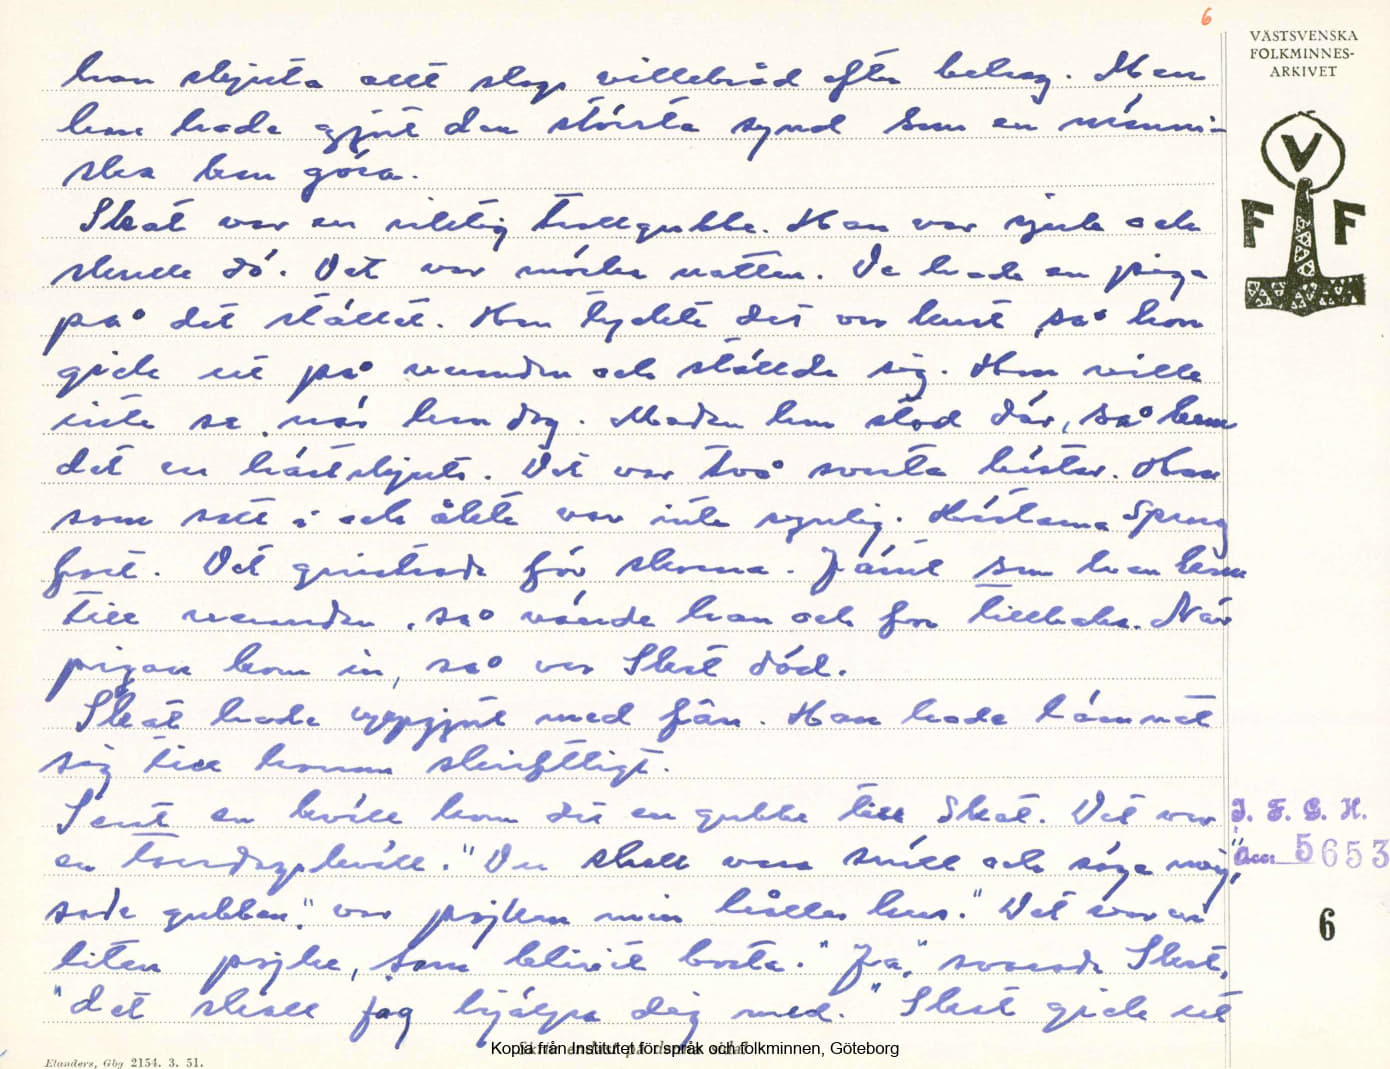 6
VÄSTSVENSKA
FOLKMINNES-
ARKIVET
V
F F
han skjuta allt slags villebråd efter behag. Men
han hade gjort den största synd som en männi-
ska kan göra.
Skat var en riktig trollgubbe. Han var sjuk och
skulle dö. Det var mörka natten. De hade en piga
på det stället. Hon tyckte det var kusit, så hon
gick ut på verandan och ställde sig. Hon ville
inte se, när han dog. Medan hon stod där, så kom
det en hästskjuts. Det var två svarta hästar. Han
som satt i och åkte var inte synlig. Hästarna sprang
fort. Det gnistrade för skorna. Jämt som han kom
till verandan, så vände han och for tillbaka. När
pigan kom in, så var Skat död.
Skat hade uppgjort med fan. Han hade lämnat
sig till honom skriftligt.
Sent en kväll kom det en gubbe till Skat. Det var
en torsdagskväll. "Du skall vara snäll och säga mig,"
sade gubben, "var pojken min håller hus." Det var en
liten pojke, som blivit borta. "Ja," svarade Skat,
"det skall jag hjälpa dig med." Skat gick ut
I. F. G. H.
Acc. 5653
6
Elanders, Gbg 2154. 3. 51.
Kopia från Institutet för språk och folkminnen, Göteborg